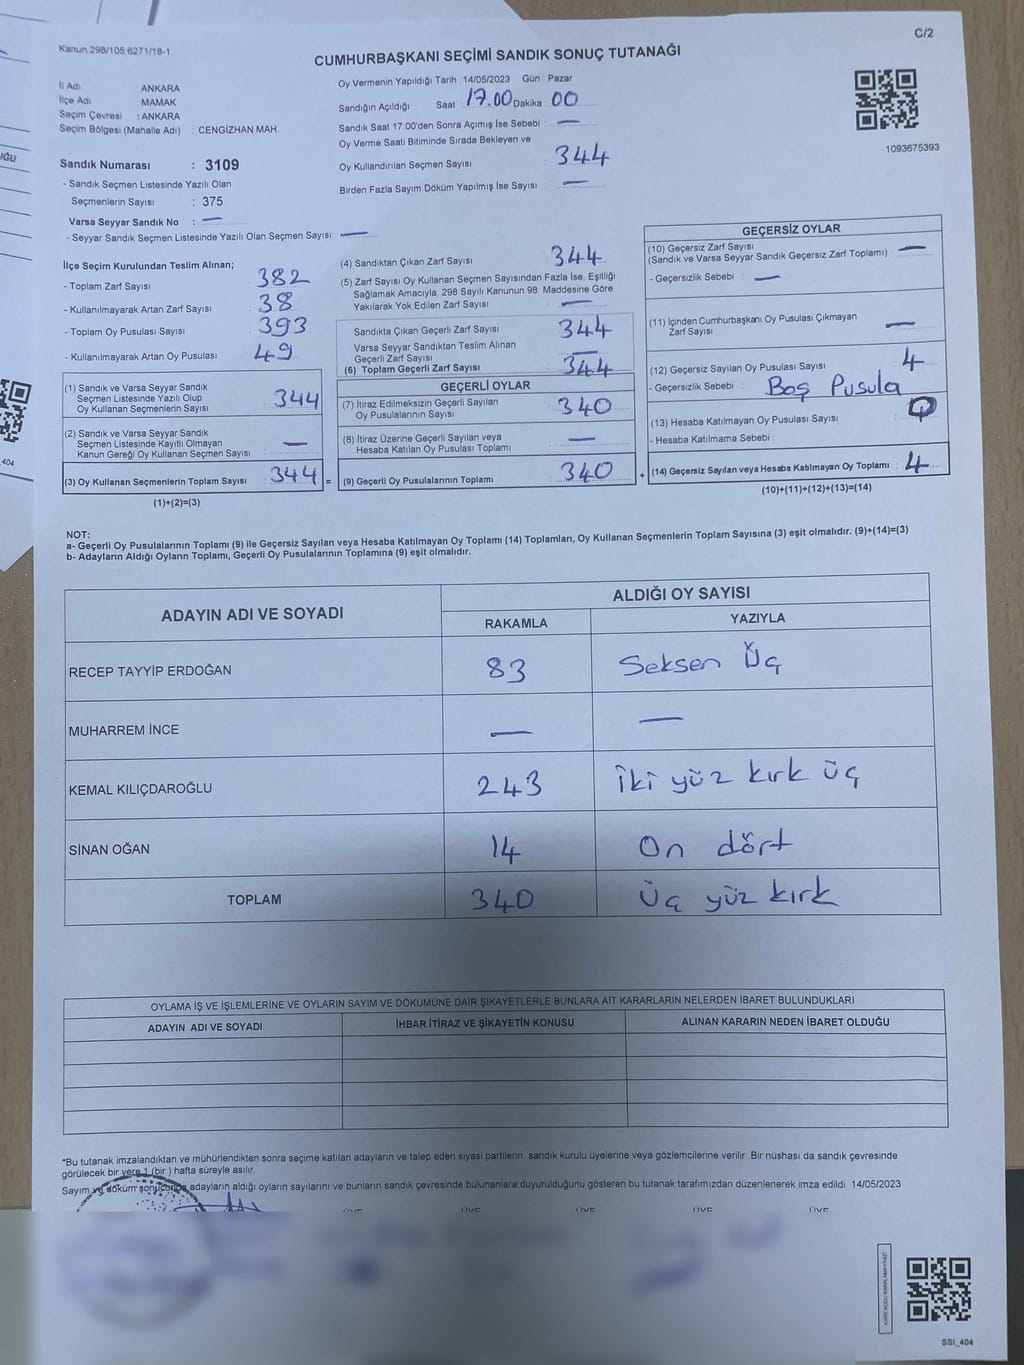 C/2
Kanun 298/105 6271/18-1
CUMHURBAŞKANI SEÇİMİ SANDIK SONUÇ TUTANAĞI
İl Adı ANKARA
İlçe Adı MAMAK
Seçim Çevresi : ANKARA
Seçim Bölgesi (Mahalle Adı) : CENGİZHAN MAH.
Sandık Numarası : 3109
- Sandık Seçmen Listesinde Yazılı Olan
Seçmenlerin Sayısı : 375
Varsa Seyyar Sandık No : —
- Seyyar Sandık Seçmen Listesinde Yazılı Olan Seçmen Sayısı: —
Oy Vermenin Yapıldığı Tarih : 14/05/2023 Gün : Pazar
Sandığın Açıldığı Saat : 17.00 Dakika : 00
Sandık Saat 17:00'den Sonra Açımış İse Sebebi : —
Oy Verme Saati Bitiminde Sırada Bekleyen ve
Oy Kullandırılan Seçmen Sayısı : 344
Birden Fazla Sayım Döküm Yapılmış İse Sayısı : —
1093675393
İlçe Seçim Kurulundan Teslim Alınan;
- Toplam Zarf Sayısı : 382
- Kullanılmayarak Artan Zarf Sayısı : 38
- Toplam Oy Pusulası Sayısı : 393
- Kullanılmayarak Artan Oy Pusulası : 49
(1) Sandık ve Varsa Seyyar Sandık
Seçmen Listesinde Yazılı Olup
Oy Kullanan Seçmenlerin Sayısı : 344
(2) Sandık ve Varsa Seyyar Sandık
Seçmen Listesinde Kayıtlı Olmayan
Kanun Gereği Oy Kullanan Seçmen Sayısı : —
(3) Oy Kullanan Seçmenlerin Toplam Sayısı : 344 =
(1)+(2)=(3)
(4) Sandıktan Çıkan Zarf Sayısı : 344
(5) Zarf Sayısı Oy Kullanan Seçmen Sayısından Fazla İse, Eşitliği
Sağlamak Amacıyla, 298 Sayılı Kanunun 98. Maddesine Göre
Yakılarak Yok Edilen Zarf Sayısı : —
Sandıkta Çıkan Geçerli Zarf Sayısı : 344
Varsa Seyyar Sandıktan Teslim Alınan
Geçerli Zarf Sayısı : —
(6) Toplam Geçerli Zarf Sayısı : 344
GEÇERLİ OYLAR
(7) İtiraz Edilmeksizin Geçerli Sayılan
Oy Pusulalarının Sayısı : 340
(8) İtiraz Üzerine Geçerli Sayılan veya
Hesaba Katılan Oy Pusulası Toplamı : —
(9) Geçerli Oy Pusulalarının Toplamı : 340 +
GEÇERSİZ OYLAR
(10) Geçersiz Zarf Sayısı
(Sandık ve Varsa Seyyar Sandık Geçersiz Zarf Toplamı) : —
- Geçersizlik Sebebi : —
(11) İçinden Cumhurbaşkanı Oy Pusulası Çıkmayan
Zarf Sayısı : —
(12) Geçersiz Sayılan Oy Pusulası Sayısı : 4
- Geçersizlik Sebebi : Boş Pusula
(13) Hesaba Katılmayan Oy Pusulası Sayısı :
- Hesaba Katılmama Sebebi :
(14) Geçersiz Sayılan veya Hesaba Katılmayan Oy Toplamı : 4
(10)+(11)+(12)+(13)=(14)
NOT:
a- Geçerli Oy Pusulalarının Toplamı (9) ile Geçersiz Sayılan veya Hesaba Katılmayan Oy Toplamı (14) Toplamları, Oy Kullanan Seçmenlerin Toplam Sayısına (3) eşit olmalıdır. (9)+(14)=(3)
b- Adayların Aldığı Oyların Toplamı, Geçerli Oy Pusulalarının Toplamına (9) eşit olmalıdır.
ADAYIN ADI VE SOYADI
ALDIĞI OY SAYISI
RAKAMLA YAZIYLA
RECEP TAYYİP ERDOĞAN 83 Seksen Üç
MUHARREM İNCE — —
KEMAL KILIÇDAROĞLU 243 İki yüz kırk üç
SİNAN OĞAN 14 On dört
TOPLAM 340 Üç yüz kırk
OYLAMA İŞ VE İŞLEMLERİNE VE OYLARIN SAYIM VE DÖKÜMÜNE DAİR ŞİKAYETLERLE BUNLARA AİT KARARLARIN NELERDEN İBARET BULUNDUKLARI
ADAYIN ADI VE SOYADI İHBAR İTİRAZ VE ŞİKAYETİN KONUSU ALINAN KARARIN NEDEN İBARET OLDUĞU
*Bu tutanak imzalandıktan ve mühürlendikten sonra seçime katılan adayların ve talep eden siyasi partilerin sandık kurulu üyelerine veya gözlemcilerine verilir .Bir nüshası da sandık çevresinde
görülecek bir yere 1 (bir ) hafta süreyle asılır.
Sayım ve döküm sonucunda adayların aldığı oyların sayılarını ve bunların sandık çevresinde bulunanlara duyurulduğunu gösteren bu tutanak tarafımızdan düzenlenerek imza edildi. 14/05/2023
ÜYE ÜYE ÜYE ÜYE ÜYE
SSI_404